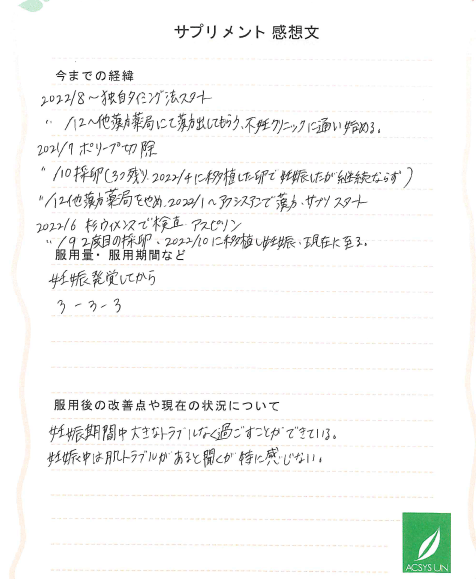 サプリメント 感想文
今までの経緯
2022/8〜独自タイミング法スタート
〃 /12〜他漢方薬局にて漢方出してもらう、不妊クリニックに通い始める。
2021/7 ポリープ切除
〃 /10 採卵(3つ残り、2022/4に移植した卵で妊娠したが継続ならず)
〃 /12他漢方薬局をやめ、2022/1〜アクシスアンで漢方、サプリスタート
2022/6 杉ウイメンズで検査 アスピリン
〃 /9 2度目の採卵、2022/10に移植し妊娠、現在に至る。
服用量・服用期間など
妊娠発覚してから
3 - 3 - 3
服用後の改善点や現在の状況について
妊娠期間中大きなトラブルなく過ごすことができている。
妊娠中は肌トラブルがあると聞くが特に感じない。
ACSYS UN